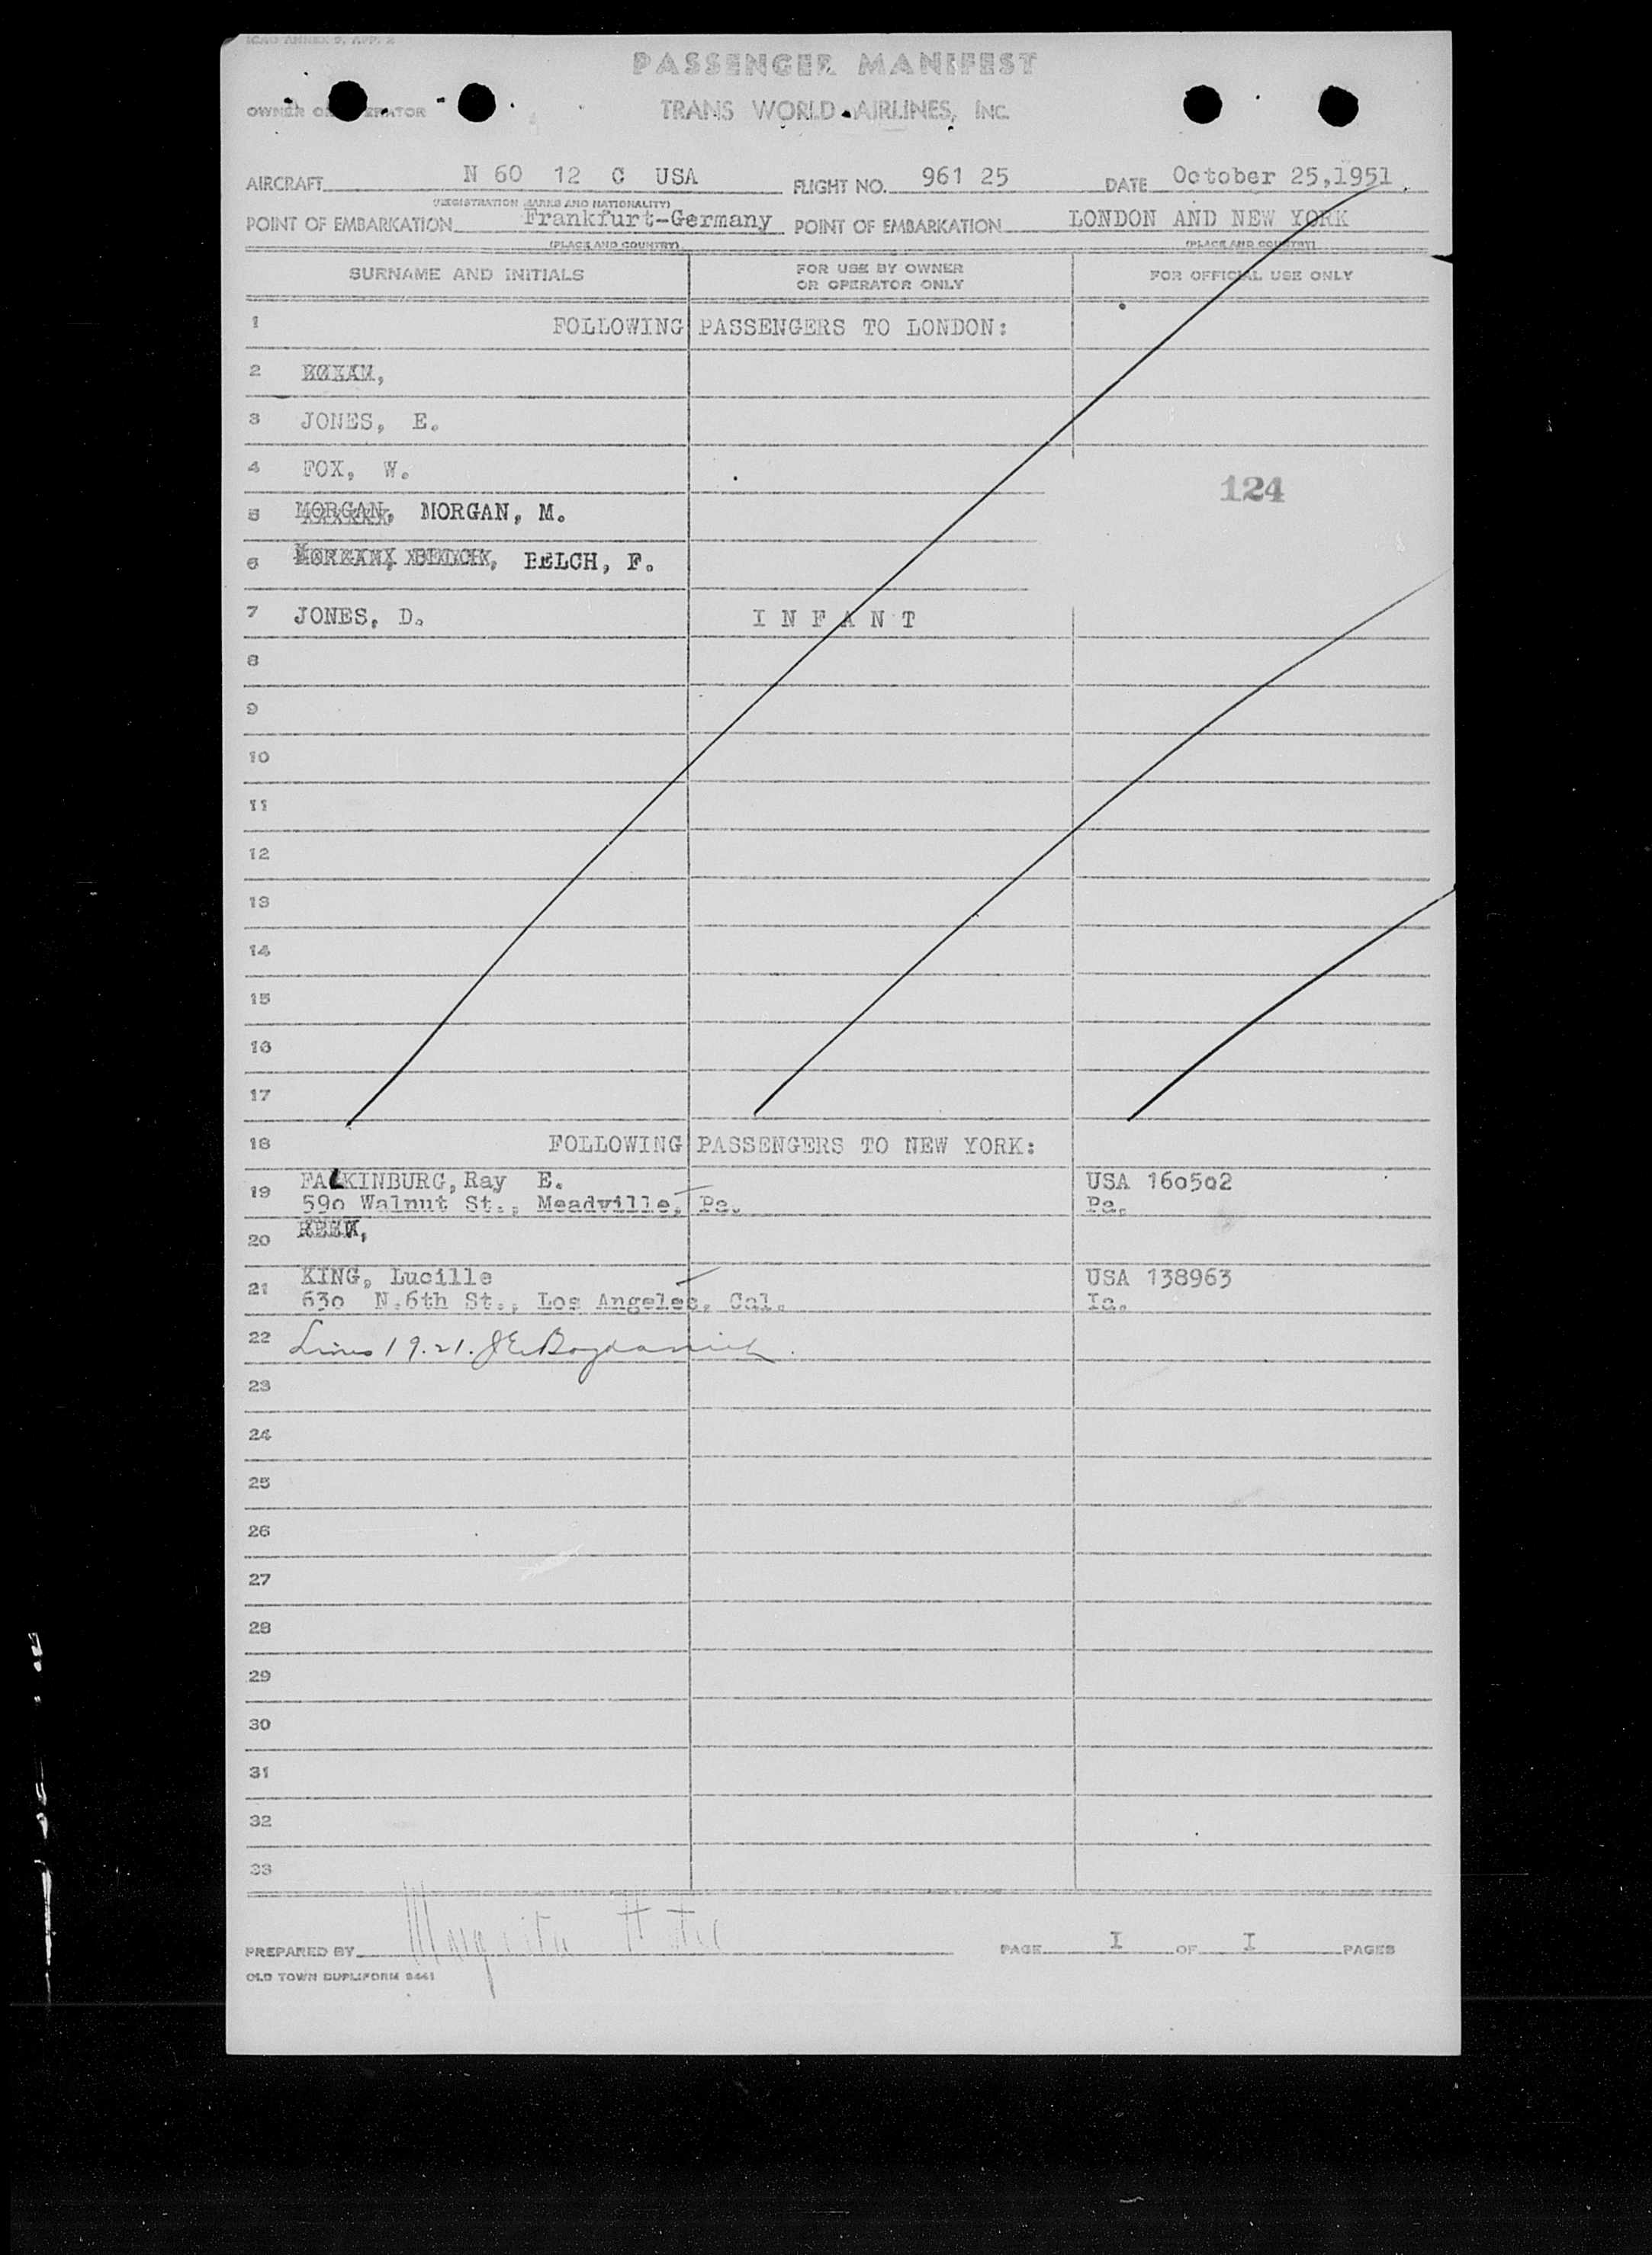 ICAO ANNEX 9, APP. 2
PASSENGER MANIFEST
OWNER OR OPERATOR TRANS WORLD AIRLINES, INC.
AIRCRAFT N 60 12 C USA FLIGHT NO. 961 25 DATE October 25,1951
(REGISTRATION MARKS AND NATIONALITY)
POINT OF EMBARKATION Frankfurt-Germany POINT OF EMBARKATION LONDON AND NEW YORK
(PLACE AND COUNTRY) (PLACE AND COUNTRY)
SURNAME AND INITIALS FOR USE BY OWNER OR OPERATOR ONLY FOR OFFICIAL USE ONLY
1 FOLLOWING PASSENGERS TO LONDON:
2
3 JONES, E.
4 FOX, W.
124
5 MORGAN, MORGAN, M.
6 BELCH, F.
7 JONES, D. I N F A N T
8
9
10
11
12
13
14
15
16
17
18 FOLLOWING PASSENGERS TO NEW YORK:
19 FALKINBURG, Ray E. USA 160502
590 Walnut St., Meadville, Pa. Pa.
20
21 KING, Lucille USA 138963
630 N.6th St., Los Angeles, Cal. Ia.
22 Lines 19.21. J E Bogdanich
23
24
25
26
27
28
29
30
31
32
33
PREPARED BY PAGE I OF I PAGES
OLD TOWN DUPLIFORM 8441